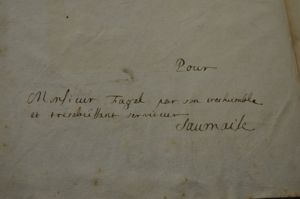 Pour
Monsieur Fagel par son treshumble
et tresobeissant serviteur
Saumaise